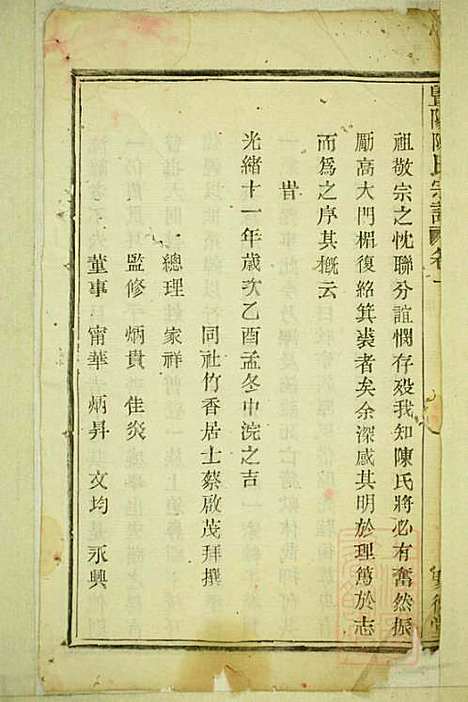 暨陽陳氏宗譜 卷一
祖敬宗之忱聯芬誼憫存殁我知陳氏將必有奮然振
勵高大門楣復紹箕裘者矣余深感其明於理篤於志
而爲之序其概云
旹
光緒十一年歲次乙酉孟冬中浣之吉
同社竹香居士蔡啟茂拜撰
總理 家祥
監修 炳貴 佳炎
董事 甯華 炳昇 文均 永興